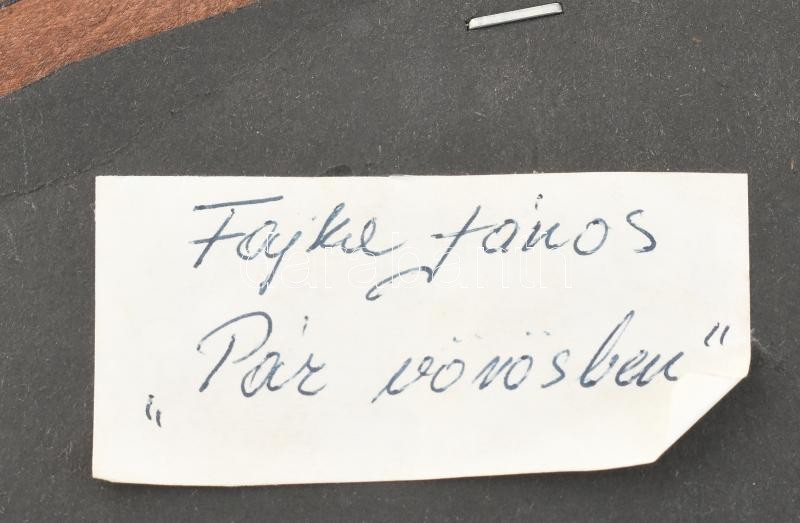 Fajka János
„Pár vörösben"